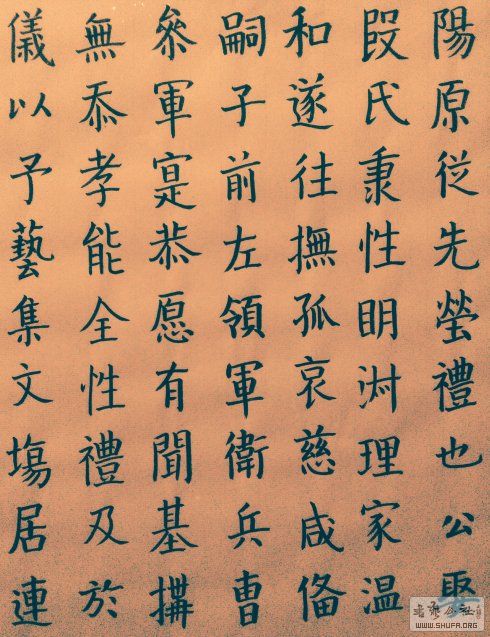 陽原從先塋禮也公娶
段氏秉性明淑理家温
和遂往撫孤哀慈咸俻
嗣子前左領軍衛兵曺
叅軍寔恭愿有聞基搆
無忝孝能全性禮及於
儀以予藝集文塲居連
WWW.SHUFA.ORG